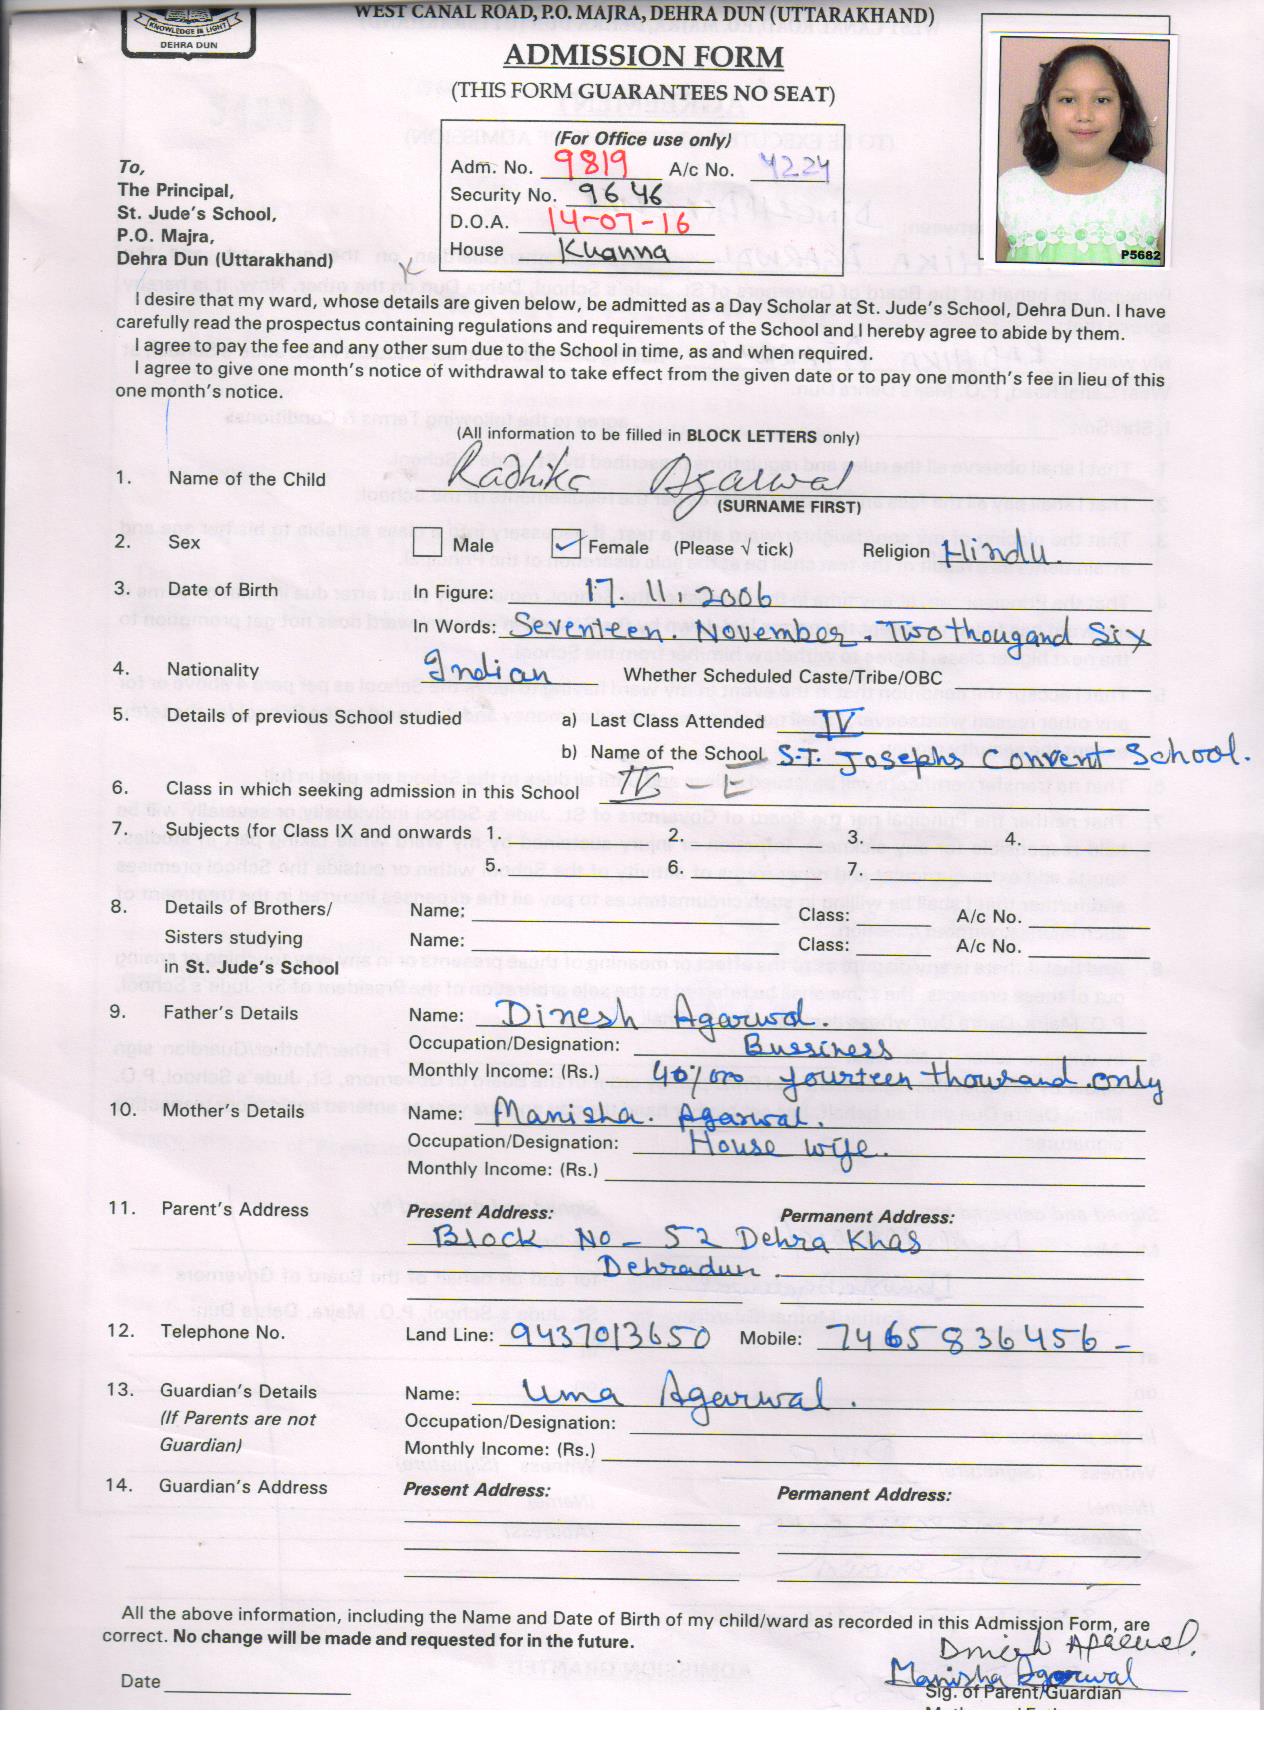 KNOWLEDGE IS LIGHT
DEHRA DUN
WEST CANAL ROAD, P.O. MAJRA, DEHRA DUN (UTTARAKHAND)
ADMISSION FORM
(THIS FORM GUARANTEES NO SEAT)
(For Office use only)
Adm. No. 9819 A/c No. 4224
Security No. 9646
D.O.A. 14-07-16
House Khanna
P5682
To,
The Principal,
St. Jude's School,
P.O. Majra,
Dehra Dun (Uttarakhand)
I desire that my ward, whose details are given below, be admitted as a Day Scholar at St. Jude's School, Dehra Dun. I have
carefully read the prospectus containing regulations and requirements of the School and I hereby agree to abide by them.
I agree to pay the fee and any other sum due to the School in time, as and when required.
I agree to give one month's notice of withdrawal to take effect from the given date or to pay one month's fee in lieu of this
one month's notice.
(All information to be filled in BLOCK LETTERS only)
1. Name of the Child Radhika Agarwal
(SURNAME FIRST)
2. Sex Male Female (Please √ tick) Religion Hindu.
3. Date of Birth In Figure: 17.11.2006
In Words: Seventeen. November. Two thougand Six
4. Nationality Indian Whether Scheduled Caste/Tribe/OBC
5. Details of previous School studied a) Last Class Attended IV
b) Name of the School S.T. Josephs Convent School.
6. Class in which seeking admission in this School
7. Subjects (for Class IX and onwards 1. 2. 3. 4.
5. 6. 7.
8. Details of Brothers/ Name: Class: A/c No.
Sisters studying Name: Class: A/c No.
in St. Jude's School
9. Father's Details Name: Dinesh Agarwal.
Occupation/Designation: Bussiness
Monthly Income: (Rs.) fourteen thousand only
10. Mother's Details Name: Manisha. Agarwal.
Occupation/Designation: House wife.
Monthly Income: (Rs.)
11. Parent's Address Present Address: Permanent Address:
Block No- 52 Dehra Khas
Dehradun.
12. Telephone No. Land Line: 9437013650 Mobile: 7465836456-
13. Guardian's Details Name: Uma Agarwal.
(If Parents are not Occupation/Designation:
Guardian) Monthly Income: (Rs.)
14. Guardian's Address Present Address: Permanent Address:
All the above information, including the Name and Date of Birth of my child/ward as recorded in this Admission Form, are
correct. No change will be made and requested for in the future.
Dinesh Agarwal.
Manisha Agarwal
Date Sig. of Parent/Guardian